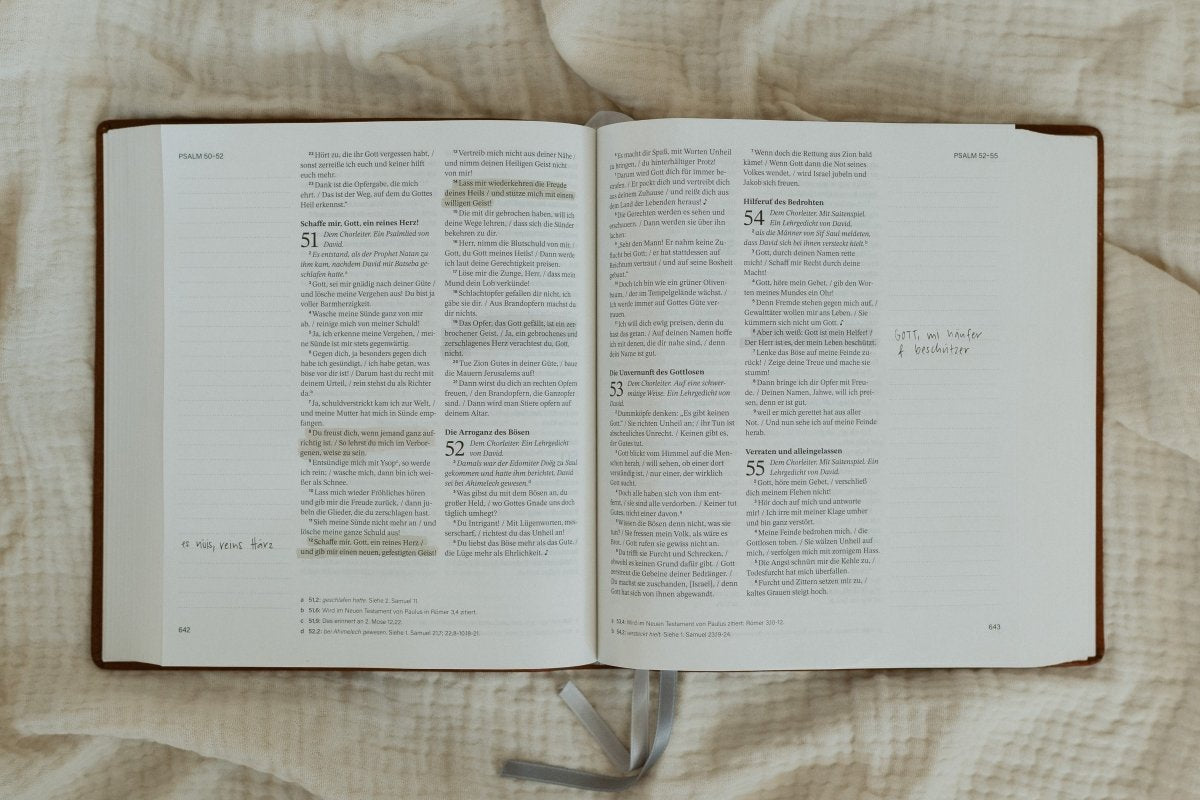 PSALM 50–52
²² Hört zu, die ihr Gott vergessen habt, /
sonst zerreiße ich euch und keiner hilft
euch mehr.
²³ Dank ist die Opfergabe, die mich
ehrt. / Das ist der Weg, auf dem du Gottes
Heil erkennst."
Schaffe mir, Gott, ein reines Herz!
51 Dem Chorleiter. Ein Psalmlied von
David.
² Es entstand, als der Prophet Natan zu
ihm kam, nachdem David mit Batseba ge-
schlafen hatte.ᵃ
³ Gott, sei mir gnädig nach deiner Güte /
und lösche meine Vergehen aus! Du bist ja
voller Barmherzigkeit.
⁴ Wasche meine Sünde ganz von mir
ab, / reinige mich von meiner Schuld!
⁵ Ja, ich erkenne meine Vergehen, / mei-
ne Sünde ist mir stets gegenwärtig.
⁶ Gegen dich, ja besonders gegen dich
habe ich gesündigt, / ich habe getan, was
böse vor dir ist! / Darum hast du recht mit
deinem Urteil, / rein stehst du als Richter
da.ᵇ
⁷ Ja, schuldverstrickt kam ich zur Welt, /
und meine Mutter hat mich in Sünde emp-
fangen.
⁸ Du freust dich, wenn jemand ganz auf-
richtig ist. / So lehrst du mich im Verbor-
genen, weise zu sein.
⁹ Entsündige mich mit Ysopᶜ, so werde
ich rein; / wasche mich, dann bin ich wei-
ßer als Schnee.
¹⁰ Lass mich wieder Fröhliches hören
und gib mir die Freude zurück, / dann ju-
beln die Glieder, die du zerschlagen hast.
¹¹ Sieh meine Sünde nicht mehr an / und
lösche meine ganze Schuld aus!
¹² Schaffe mir, Gott, ein reines Herz /
und gib mir einen neuen, gefestigten Geist!
es nüis, reins Härz
¹³ Vertreib mich nicht aus deiner Nähe /
und nimm deinen Heiligen Geist nicht
von mir!
¹⁴ Lass mir wiederkehren die Freude
deines Heils / und stütze mich mit einem
willigen Geist!
¹⁵ Die mit dir gebrochen haben, will ich
deine Wege lehren, / dass sich die Sünder
bekehren zu dir.
¹⁶ Herr, nimm die Blutschuld von mir, /
Gott, du Gott meines Heils! / Dann werde
ich laut deine Gerechtigkeit preisen.
¹⁷ Löse mir die Zunge, Herr, / dass mein
Mund dein Lob verkünde!
¹⁸ Schlachtopfer gefallen dir nicht, ich
gäbe sie dir. / Aus Brandopfern machst du
dir nichts.
¹⁹ Das Opfer, das Gott gefällt, ist ein zer-
brochener Geist. / Ja, ein gebrochenes und
zerschlagenes Herz verachtest du, Gott,
nicht.
²⁰ Tue Zion Gutes in deiner Güte, / baue
die Mauern Jerusalems auf!
²¹ Dann wirst du dich an rechten Opfern
freuen, / den Brandopfern, die Ganzopfer
sind. / Dann wird man Stiere opfern auf
deinem Altar.
Die Arroganz des Bösen
52 Dem Chorleiter. Ein Lehrgedicht
von David.
² Damals war der Edomiter Doëg zu Saul
gekommen und hatte ihm berichtet, David
sei bei Ahimelech gewesen.ᵈ
³ Was gibst du mit dem Bösen an, du
großer Held, / wo Gottes Gnade uns doch
täglich umhegt?
⁴ Du Intrigant! / Mit Lügenworten, mes-
serscharf, / richtest du das Unheil an!
⁵ Du liebst das Böse mehr als das Gute, /
die Lüge mehr als Ehrlichkeit. ♪
a 51,2: geschlafen hatte. Siehe 2. Samuel 11.
b 51,6: Wird im Neuen Testament von Paulus in Römer 3,4 zitiert.
c 51,9: Das erinnert an 2. Mose 12,22.
d 52,2: bei Ahimelech gewesen. Siehe 1. Samuel 21,7; 22,8-10.18-21.
642
PSALM 52–55
⁶ Es macht dir Spaß, mit Worten Unheil
zu bringen, / du hinterhältiger Protz!
⁷ Darum wird Gott dich für immer ze-
/ Er packt dich und vertreibt dich
aus deinem Zuhause / und reißt dich aus
dem Land der Lebenden heraus! ♪
⁸ Die Gerechten werden es sehen und
erschauern. / Dann werden sie über ihn
lachen:
⁹ „Seht den Mann! Er nahm keine Zu-
flucht bei Gott; / er hat stattdessen auf
Reichtum vertraut / und auf seine Bosheit
gebaut."
¹⁰ Doch ich bin wie ein grüner Oliven-
baum, / der im Tempelgelände wächst. /
Ich werde immer auf Gottes Güte ver-
trauen.
¹¹ Ich will dich ewig preisen, denn du
hast das getan. / Auf deinen Namen hoffe
ich mit denen, die dir nahe sind, / denn
dein Name ist gut.
Die Unvernunft des Gottlosen
53 Dem Chorleiter. Auf eine schwer-
mütige Weise. Ein Lehrgedicht von
David.
² Dummköpfe denken: „Es gibt keinen
Gott." / Sie richten Unheil an; / ihr Tun ist
abscheuliches Unrecht. / Keinen gibt es,
der Gutes tut.
³ Gott blickt vom Himmel auf die Men-
schen herab, / will sehen, ob einer dort
verständig ist, / nur einer, der wirklich
Gott sucht.
⁴ Doch alle haben sich von ihm ent-
fernt, / sie sind alle verdorben. / Keiner tut
Gutes, nicht einer davon.ᵃ
⁵ Wissen die Bösen denn nicht, was sie
tun? / Sie fressen mein Volk, als wäre es
Brot. / Gott rufen sie gewiss nicht an.
⁶ Da trifft sie Furcht und Schrecken, /
obwohl es keinen Grund dafür gibt. / Gott
zerstreut die Gebeine deiner Bedränger. /
Du machst sie zuschanden, [Israel], / denn
Gott hat sich von ihnen abgewandt.
⁷ Wenn doch die Rettung aus Zion bald
käme! / Wenn Gott dann die Not seines
Volkes wendet, / wird Israel jubeln und
Jakob sich freuen.
Hilferuf des Bedrohten
54 Dem Chorleiter. Mit Saitenspiel.
Ein Lehrgedicht von David,
² als die Männer von Sif Saul meldeten,
dass David sich bei ihnen versteckt hielt.ᵇ
³ Gott, durch deinen Namen rette
mich! / Schaff mir Recht durch deine
Macht!
⁴ Gott, höre mein Gebet, / gib den Wor-
ten meines Mundes ein Ohr!
⁵ Denn Fremde stehen gegen mich auf, /
Gewalttäter wollen mir ans Leben. / Sie
kümmern sich nicht um Gott. ♪
⁶ Aber ich weiß: Gott ist mein Helfer! /
Der Herr ist es, der mein Leben beschützt.
⁷ Lenke das Böse auf meine Feinde zu-
rück! / Zeige deine Treue und mache sie
stumm!
⁸ Dann bringe ich dir Opfer mit Freu-
de. / Deinen Namen, Jahwe, will ich prei-
sen, denn er ist gut.
⁹ weil er mich gerettet hat aus aller
Not. / Und nun sehe ich auf meine Feinde
herab.
Verraten und alleingelassen
55 Dem Chorleiter. Mit Saitenspiel. Ein
Lehrgedicht von David.
² Gott, höre mein Gebet, / verschließ
dich meinem Flehen nicht!
³ Hör doch auf mich und antworte
mir! / Ich irre mit meiner Klage umher
und bin ganz verstört.
⁴ Meine Feinde bedrohen mich, / die
Gottlosen toben. / Sie wälzen Unheil auf
mich, / verfolgen mich mit zornigem Hass.
⁵ Die Angst schnürt mir die Kehle zu, /
Todesfurcht hat mich überfallen.
⁶ Furcht und Zittern setzen mir zu, /
kaltes Grauen steigt hoch.
GOTT, mi häufer
& beschützer
a 53,4: Wird im Neuen Testament von Paulus zitiert: Römer 3,10-12.
b 54,2: versteckt hielt. Siehe 1. Samuel 23,19-24.
643